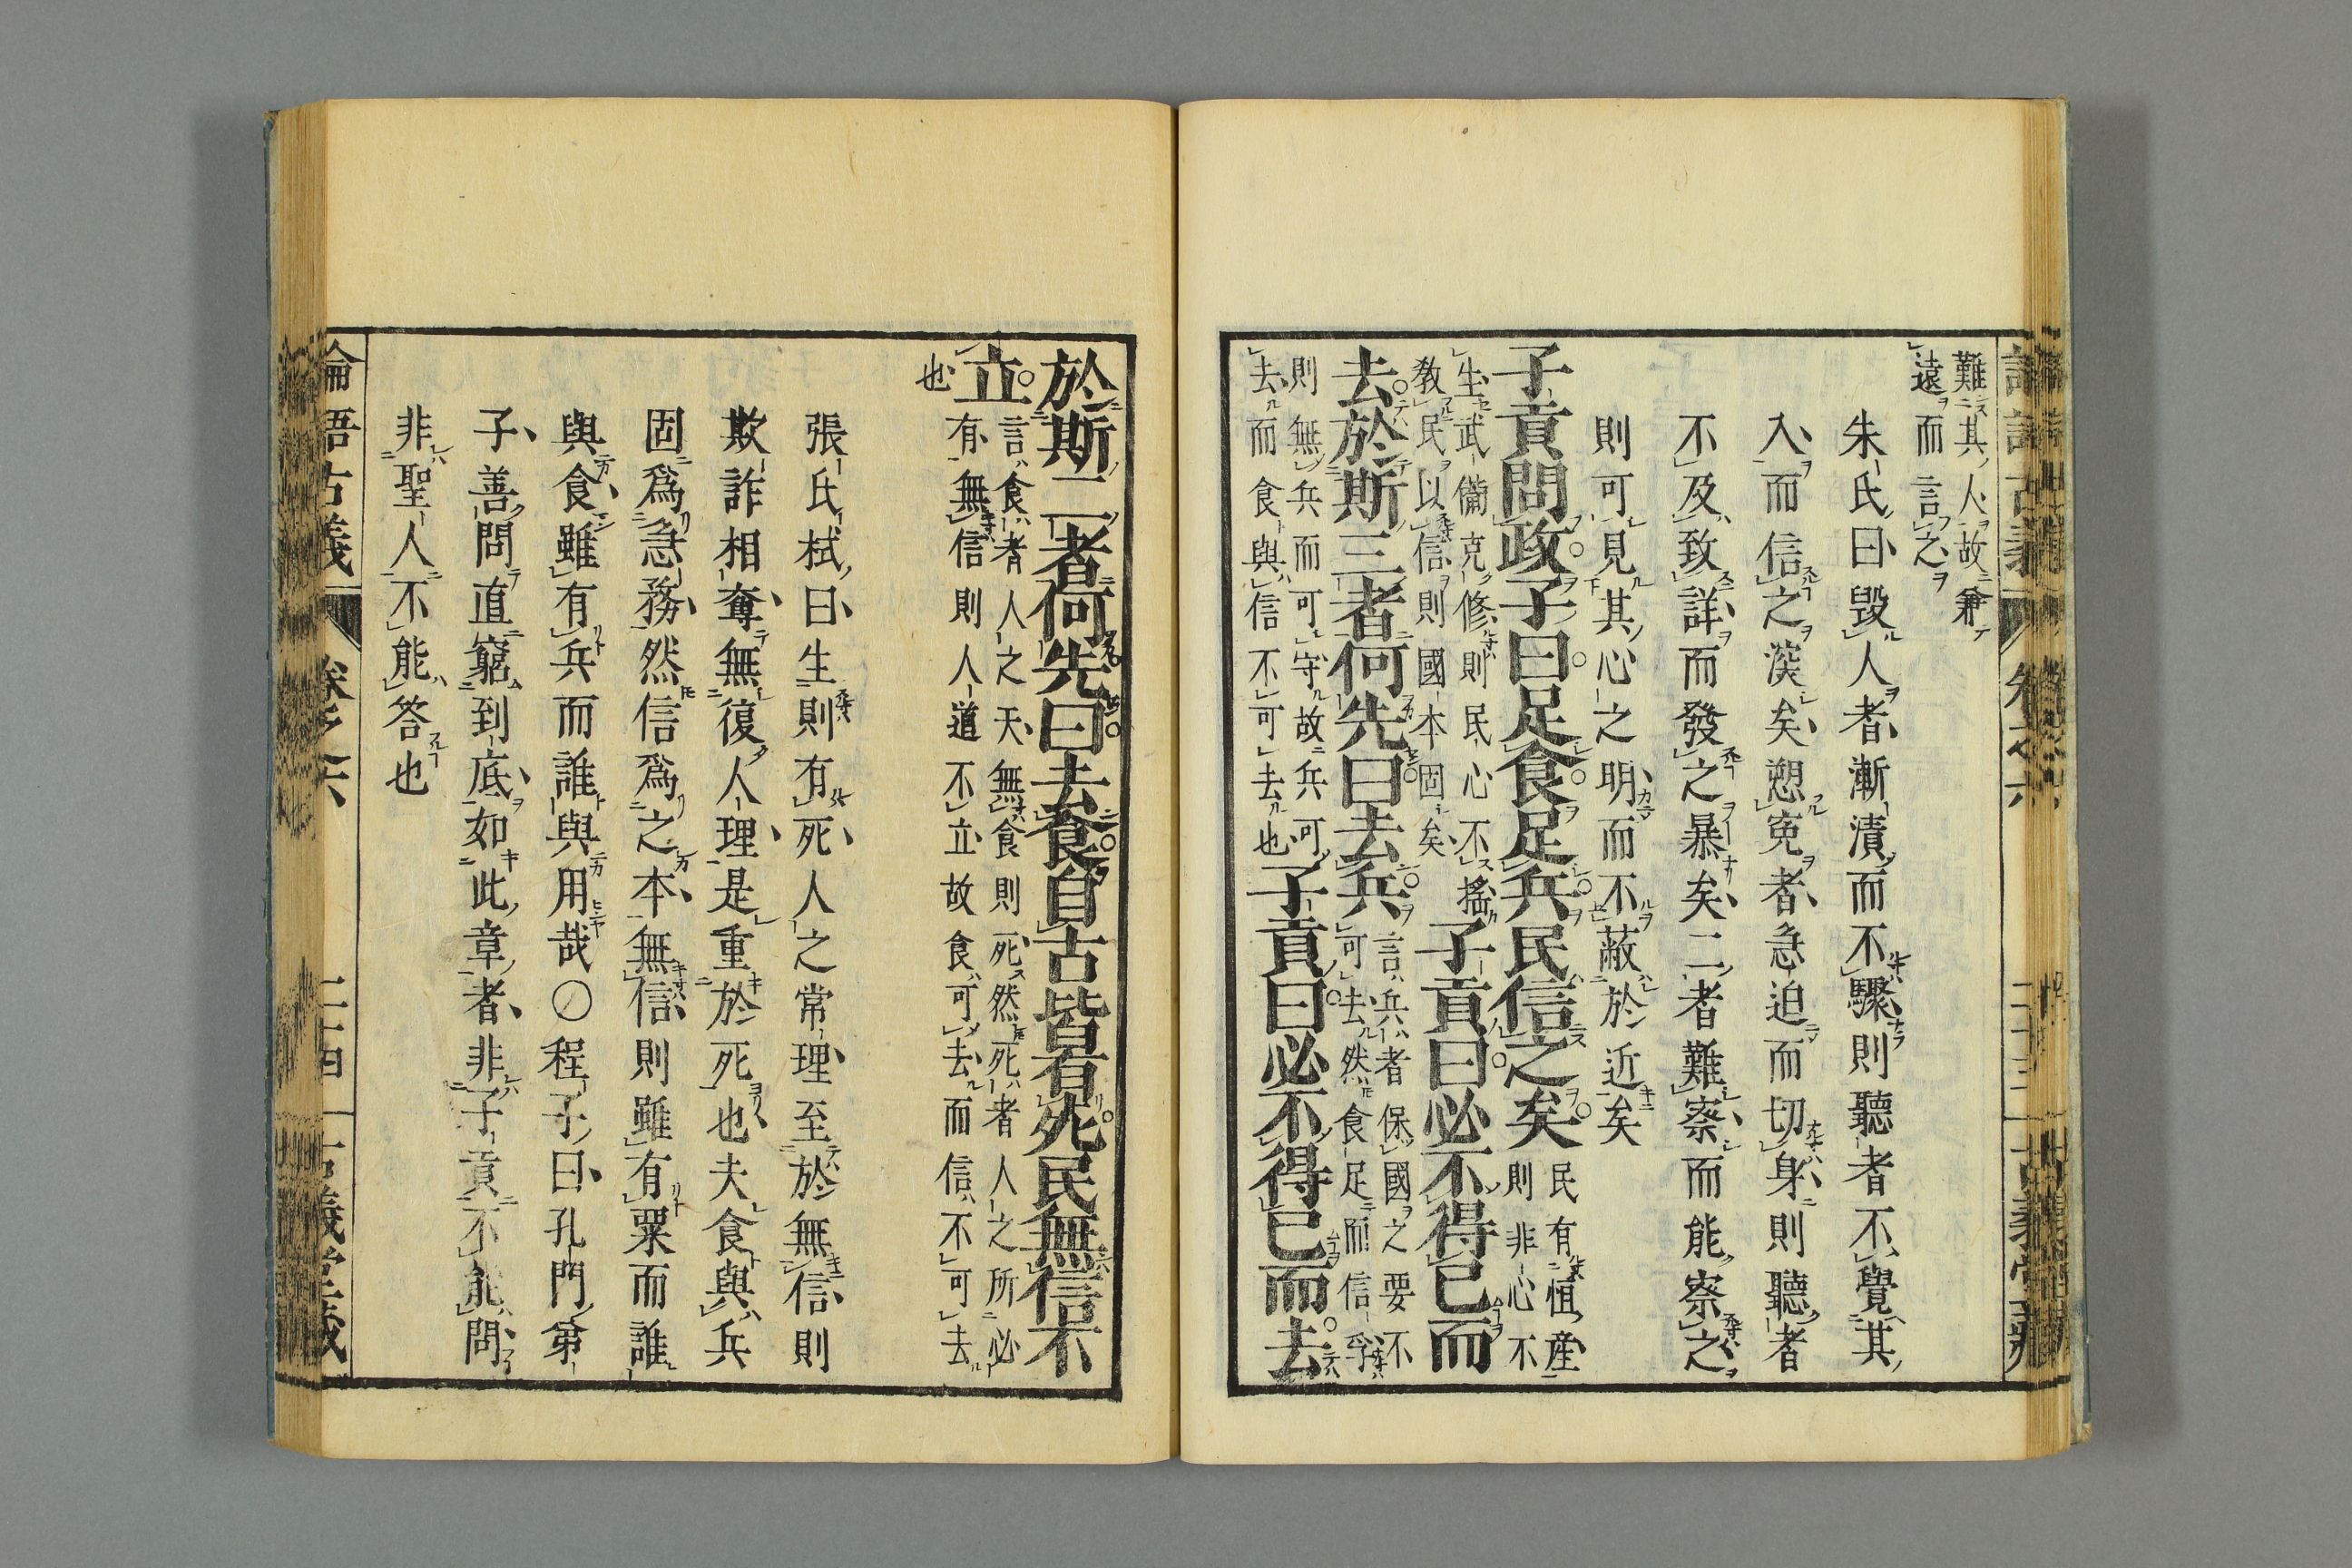 難其人故兼
遠而言之
朱氏曰毀人者漸漬而不驟則聽者不覺其
入而信之深矣愬寃者急迫而切身則聽者
不及致詳而發之暴矣二者難察而能察之
則可見其心之明而不蔽於近矣
子貢問政子曰足食足兵民信之矣
民有恒產
則非心不
生武備克修則民心不搖
教民以信則國本固矣
子貢曰必不得已而
去於斯三者何先曰去兵
言兵者保國之要不
可去然食足而信孚
則無兵而可守故兵可
去而食與信不可去也
子貢曰必不得已而去
於斯二者何先曰去食自古皆有死民無信不
立
言食者人之天無食則死然死者人之所必
有無信則人道不立故食可去而信不可去
也
張氏栻曰生則有死人之常理至於無信則
欺詐相奪無復人理是重於死也夫食與兵
固爲急務然信爲之本無信則雖有粟而誰
與食雖有兵而誰與用哉〇程子曰孔門第
子善問直窮到底如此章者非子貢不能問
非聖人不能答也
論語古義
卷之六
二十四
古義堂藏